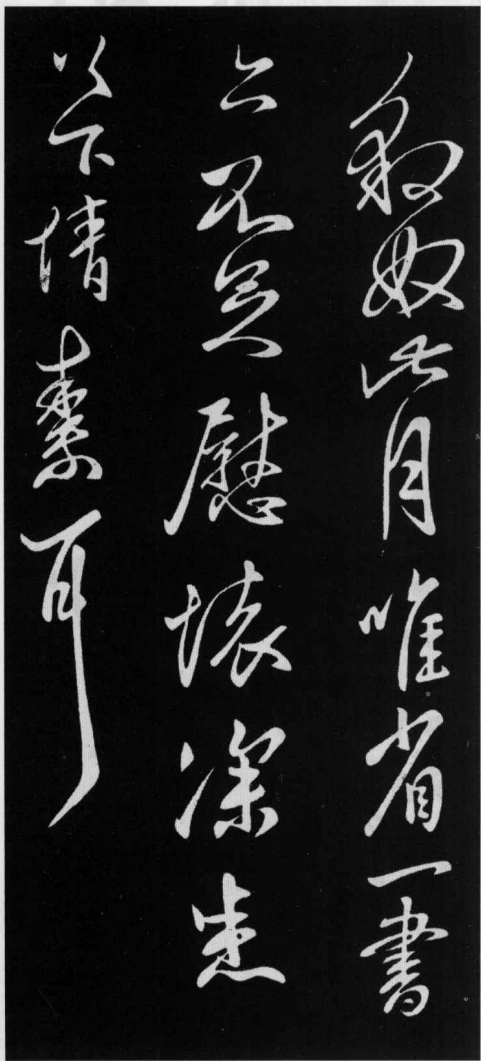 豹奴此月唯省一書
亦不足慰懷深
以下情素耳